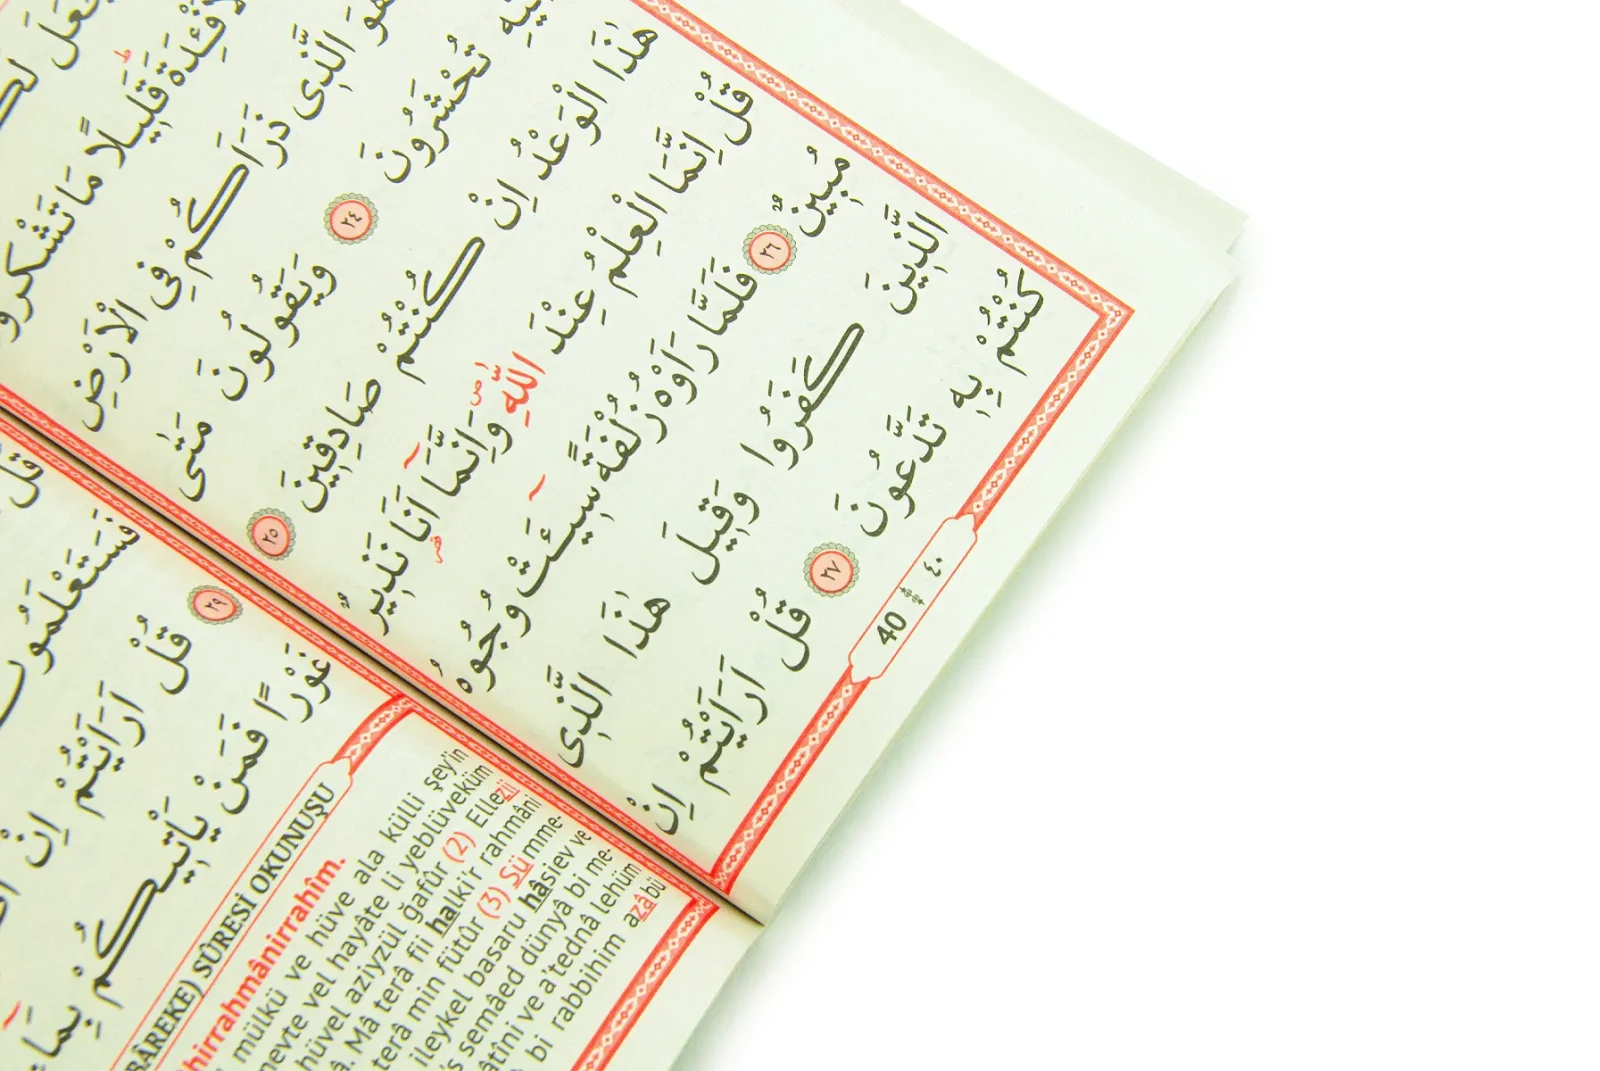 جَعَلَ
قَلٖيلًا مَا تَشْكُرُو
هُوَ الَّذٖى ذَرَاَكُمْ فِى الْاَرْضِ
تُحْشَرُونَ ٢٤ وَيَقُولُونَ مَتٰى
هٰذَا الْوَعْدُ اِنْ كُنْتُمْ صَادِقٖينَ ٢٥
قُلْ اِنَّمَا الْعِلْمُ عِنْدَ اللّٰهِ وَاِنَّمَٓا اَنَا نَذٖيرٌ
مُبٖينٌ ٢٦ فَلَمَّا رَاَوْهُ زُلْفَةً سٖٓيئَتْ وُجُوهُ
الَّذٖينَ كَفَرُوا وَقٖيلَ هٰذَا الَّذٖى
كُنْتُمْ بِهٖ تَدَّعُونَ ٢٧ قُلْ اَرَاَيْتُمْ اِنْ
40 ٤٠
قُلْ
فَسَتَعْلَمُونَ
٢٩ قُلْ اَرَاَيْتُمْ اِنْ
غَوْرًا فَمَنْ يَاْتٖيكُمْ بِمَٓاءٍ
BÂREKE) SÛRESİ OKUNUŞU
hirrahmânirrahîm.
mülkü ve hüve ala külli şey'in
mevte vel hayâte li yeblüveküm
hüvel aziyzül ğafûr (2) Ellezii
Mâ terâ fii halki'r rahmâni
terâ min fütûr (3) Sümme-
ileykel basaru hâsiev ve
s semâed dünyâ bi me-
âtîni ve a'tednâ lehüm
bi rabbihim azâbü